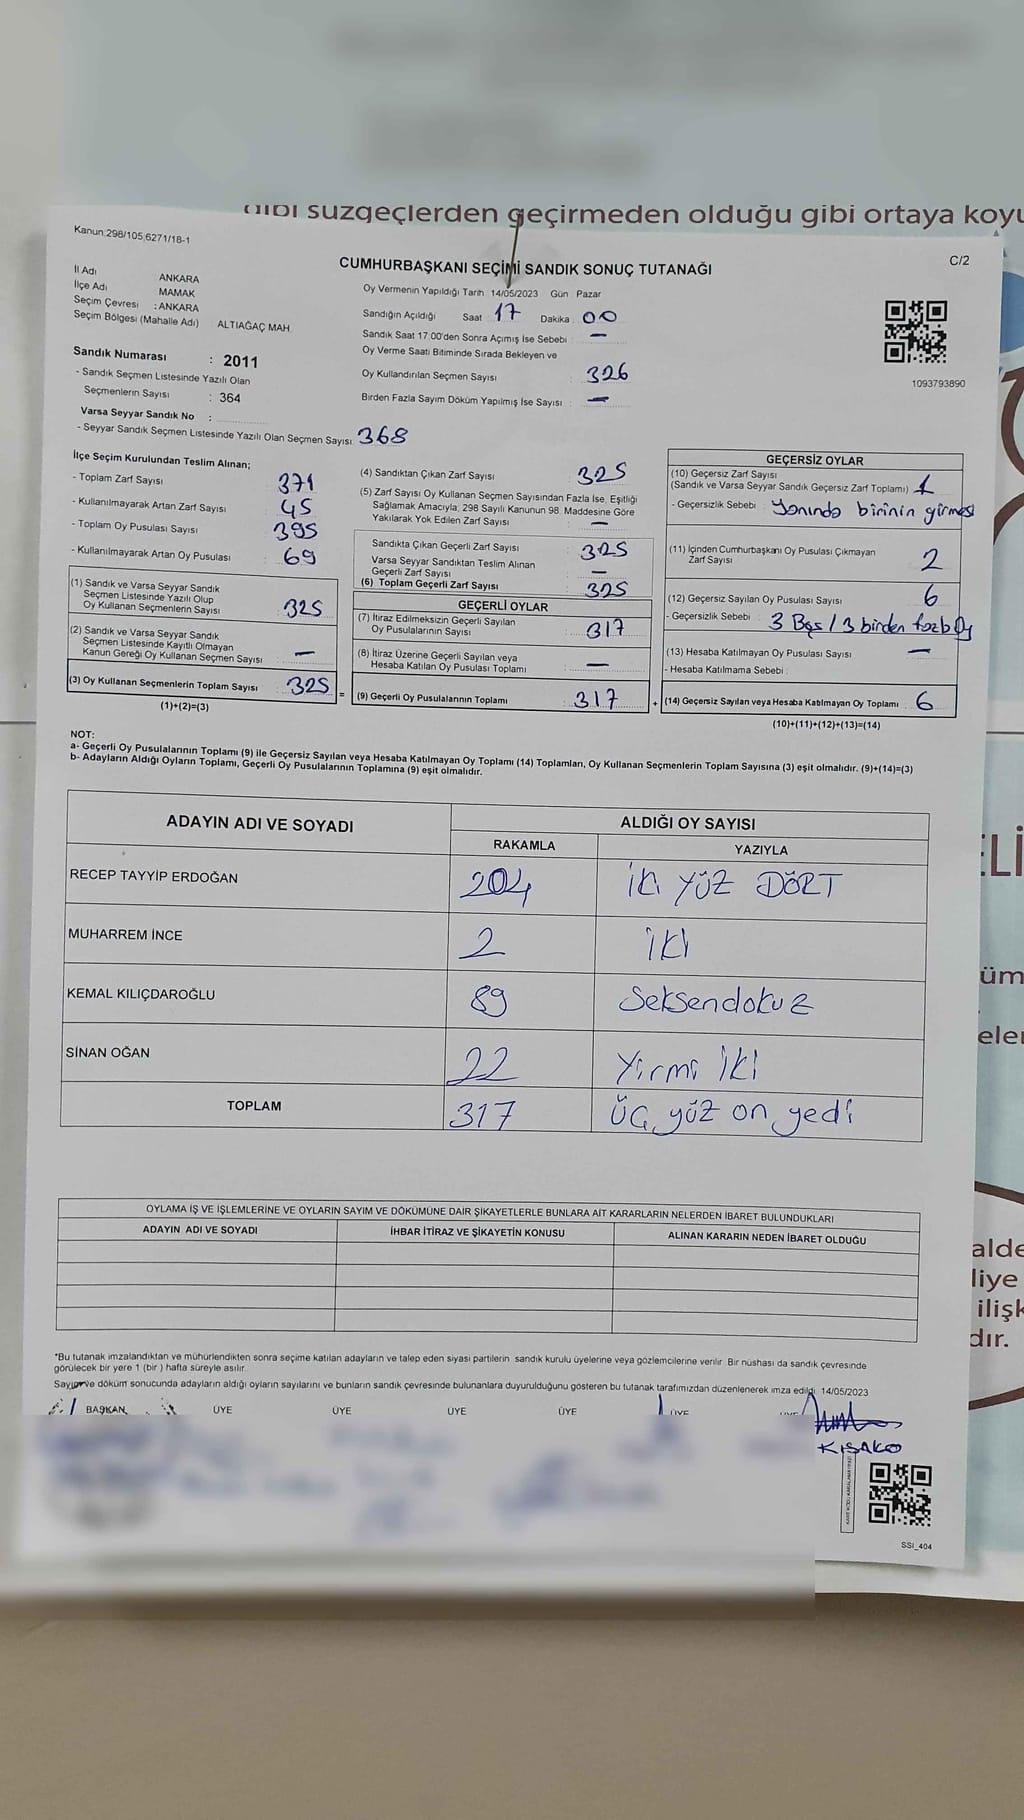 gibi süzgeçlerden geçirmeden olduğu gibi ortaya koyu
Kanun:298/105,6271/18-1
C/2
CUMHURBAŞKANI SEÇİMİ SANDIK SONUÇ TUTANAĞI
İl Adı ANKARA
İlçe Adı MAMAK
Seçim Çevresi : ANKARA
Seçim Bölgesi (Mahalle Adı) : ALTIAĞAÇ MAH.
Sandık Numarası : 2011
- Sandık Seçmen Listesinde Yazılı Olan
Seçmenlerin Sayısı : 364
Varsa Seyyar Sandık No :
- Seyyar Sandık Seçmen Listesinde Yazılı Olan Seçmen Sayısı: 368
Oy Vermenin Yapıldığı Tarih 14/05/2023 Gün Pazar
Sandığın Açıldığı Saat 17 Dakika 00
Sandık Saat 17:00'den Sonra Açımış İse Sebebi : —
Oy Verme Saati Bitiminde Sırada Bekleyen ve
Oy Kullandırılan Seçmen Sayısı : 326
Birden Fazla Sayım Döküm Yapılmış İse Sayısı : —
1093793890
İlçe Seçim Kurulundan Teslim Alınan;
- Toplam Zarf Sayısı 371
- Kullanılmayarak Artan Zarf Sayısı 45
- Toplam Oy Pusulası Sayısı 395
- Kullanılmayarak Artan Oy Pusulası 69
(1) Sandık ve Varsa Seyyar Sandık
Seçmen Listesinde Yazılı Olup
Oy Kullanan Seçmenlerin Sayısı : 325
(2) Sandık ve Varsa Seyyar Sandık
Seçmen Listesinde Kayıtlı Olmayan
Kanun Gereği Oy Kullanan Seçmen Sayısı : —
(3) Oy Kullanan Seçmenlerin Toplam Sayısı : 325 =
(1)+(2)=(3)
(4) Sandıktan Çıkan Zarf Sayısı : 325
(5) Zarf Sayısı Oy Kullanan Seçmen Sayısından Fazla İse, Eşitliği
Sağlamak Amacıyla; 298 Sayılı Kanunun 98. Maddesine Göre
Yakılarak Yok Edilen Zarf Sayısı : —
Sandıkta Çıkan Geçerli Zarf Sayısı : 325
Varsa Seyyar Sandıktan Teslim Alınan
Geçerli Zarf Sayısı : —
(6) Toplam Geçerli Zarf Sayısı : 325
GEÇERLİ OYLAR
(7) İtiraz Edilmeksizin Geçerli Sayılan
Oy Pusulalarının Sayısı : 317
(8) İtiraz Üzerine Geçerli Sayılan veya
Hesaba Katılan Oy Pusulası Toplamı : —
(9) Geçerli Oy Pusulalarının Toplamı : 317 +
GEÇERSİZ OYLAR
(10) Geçersiz Zarf Sayısı
(Sandık ve Varsa Seyyar Sandık Geçersiz Zarf Toplamı) : 1
- Geçersizlik Sebebi : Yanında birinin girmesi
(11) İçinden Cumhurbaşkanı Oy Pusulası Çıkmayan
Zarf Sayısı : 2
(12) Geçersiz Sayılan Oy Pusulası Sayısı : 6
- Geçersizlik Sebebi : 3 Boş / 3 birden fazla oy
(13) Hesaba Katılmayan Oy Pusulası Sayısı : —
- Hesaba Katılmama Sebebi :
(14) Geçersiz Sayılan veya Hesaba Katılmayan Oy Toplamı : 6
(10)+(11)+(12)+(13)=(14)
NOT:
a- Geçerli Oy Pusulalarının Toplamı (9) ile Geçersiz Sayılan veya Hesaba Katılmayan Oy Toplamı (14) Toplamları, Oy Kullanan Seçmenlerin Toplam Sayısına (3) eşit olmalıdır. (9)+(14)=(3)
b- Adayların Aldığı Oyların Toplamı, Geçerli Oy Pusulalarının Toplamına (9) eşit olmalıdır.
ADAYIN ADI VE SOYADI
ALDIĞI OY SAYISI
RAKAMLA YAZIYLA
RECEP TAYYİP ERDOĞAN 204 İKİ YÜZ DÖRT
MUHARREM İNCE 2 İKİ
KEMAL KILIÇDAROĞLU 89 Seksendokuz
SİNAN OĞAN 22 Yirmi İKİ
TOPLAM 317 Üç yüz on yedi
OYLAMA İŞ VE İŞLEMLERİNE VE OYLARIN SAYIM VE DÖKÜMÜNE DAİR ŞİKAYETLERLE BUNLARA AİT KARARLARIN NELERDEN İBARET BULUNDUKLARI
ADAYIN ADI VE SOYADI İHBAR İTİRAZ VE ŞİKAYETİN KONUSU ALINAN KARARIN NEDEN İBARET OLDUĞU
*Bu tutanak imzalandıktan ve mühürlendikten sonra seçime katılan adayların ve talep eden siyasi partilerin sandık kurulu üyelerine veya gözlemcilerine verilir. Bir nüshası da sandık çevresinde
görülecek bir yere 1 (bir ) hafta süreyle asılır.
Sayım ve döküm sonucunda adayların aldığı oyların sayılarını ve bunların sandık çevresinde bulunanlara duyurulduğunu gösteren bu tutanak tarafımızdan düzenlenerek imza edildi. 14/05/2023
BAŞKAN ÜYE ÜYE ÜYE ÜYE ÜYE ÜYE
KISAKO
SSI_404
ELİ
üm
eler
alde
liye
ilişk
dır.